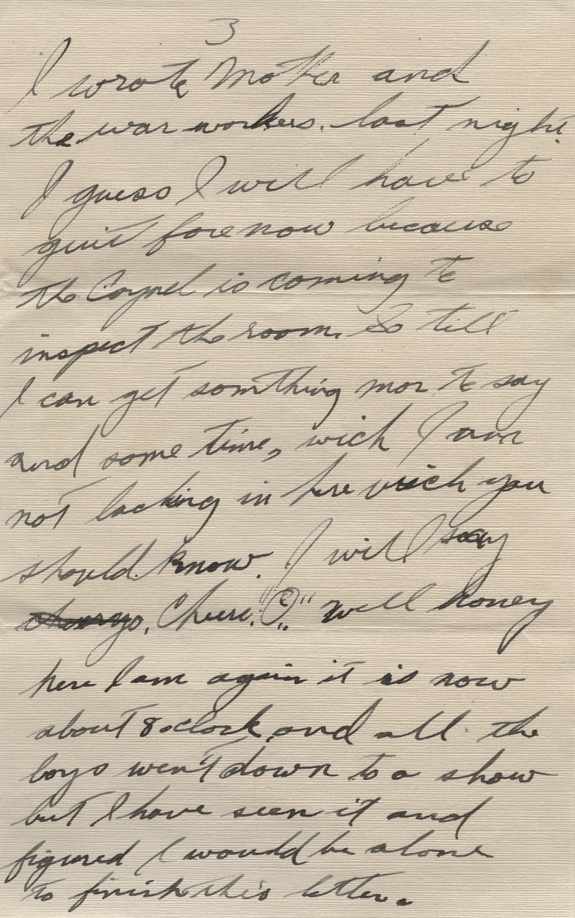 3
I wrote Mother and
the war workers. last night
I guess I will have to
quit fore now because
the Coynel is coming to
inspect the room. So till
I can get somthing mor to say
and some time, wich I am
not lacking in here wich you
should know. I will say
Cheere. "O" well honey
here I am again it is now
about 8 oclock and all the
boys wen't down to a show
but I have seen it and
figured I would be alone
to finish this letter.